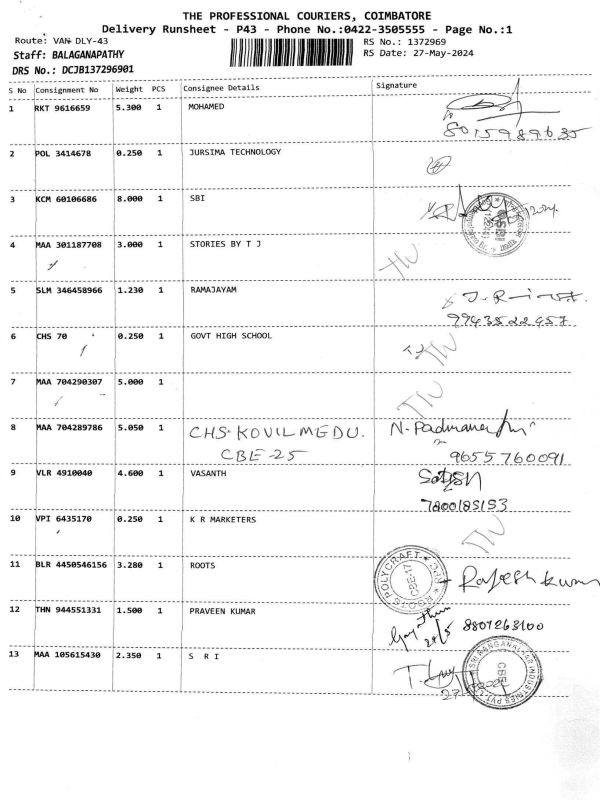 THE PROFESSIONAL COURIERS, COIMBATORE
Delivery Runsheet - P43 - Phone No.:0422-3505555 - Page No.:1
Route: VAN DLY-43
RS No.: 1372969
Staff: BALAGANAPATHY
RS Date: 27-May-2024
DRS No.: DCJB137296901
S No Consignment No Weight PCS Consignee Details Signature
1 RKT 9616659 5.300 1 MOHAMED
8015989635
2 POL 3414678 0.250 1 JURSIMA TECHNOLOGY
3 KCM 60106686 8.000 1 SBI
4 MAA 301187708 3.000 1 STORIES BY T J
5 SLM 346458966 1.230 1 RAMAJAYAM
9943522457
6 CHS 70 0.250 1 GOVT HIGH SCHOOL
7 MAA 704290307 5.000 1
8 MAA 704289786 5.050 1 CHS-KOVILMEDU.
CBE-25
9655760091
9 VLR 4910040 4.600 1 VASANTH
7800185153
10 VPI 6435170 0.250 1 K R MARKETERS
11 BLR 4450546156 3.280 1 ROOTS
ROOTS POLYCRAFT
CBE-17
Rajesh kumar
12 THN 944551331 1.500 1 PRAVEEN KUMAR
8807263100
13 MAA 105615430 2.350 1 S R I